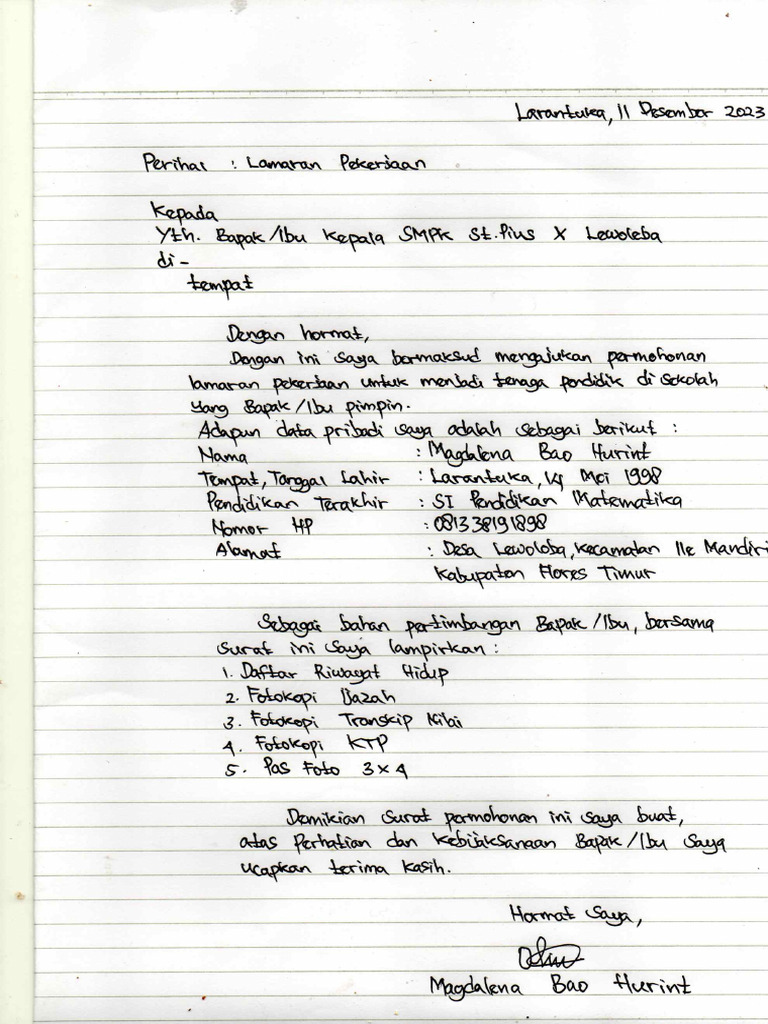 Larantuka, 11 Desember 2023
Perihal : Lamaran Pekerjaan
Kepada
Yth. Bapak/Ibu Kepala SMPK St. Pius X Lewoleba
di-
tempat
Dengan hormat,
Dengan ini saya bermaksud mengajukan permohonan
lamaran pekerjaan untuk menjadi tenaga pendidik di sekolah
yang Bapak/Ibu pimpin.
Adapun data pribadi saya adalah sebagai berikut :
Nama : Magdalena Bao Hurint
Tempat, Tanggal Lahir : Larantuka, 14 Mei 1998
Pendidikan Terakhir : S1 Pendidikan Matematika
Nomor HP : 081338191898
Alamat : Desa Lewoloba, Kecamatan Ile Mandiri
Kabupaten Flores Timur
Sebagai bahan pertimbangan Bapak/Ibu, bersama
surat ini saya lampirkan :
1. Daftar Riwayat Hidup
2. Fotokopi Ijazah
3. Fotokopi Transkip Nilai
4. Fotokopi KTP
5. Pas Foto 3x4
Demikian surat permohonan ini saya buat,
atas Perhatian dan kebijaksanaan Bapak/Ibu saya
ucapkan terima kasih.
Hormat saya,
Magdalena Bao Hurint